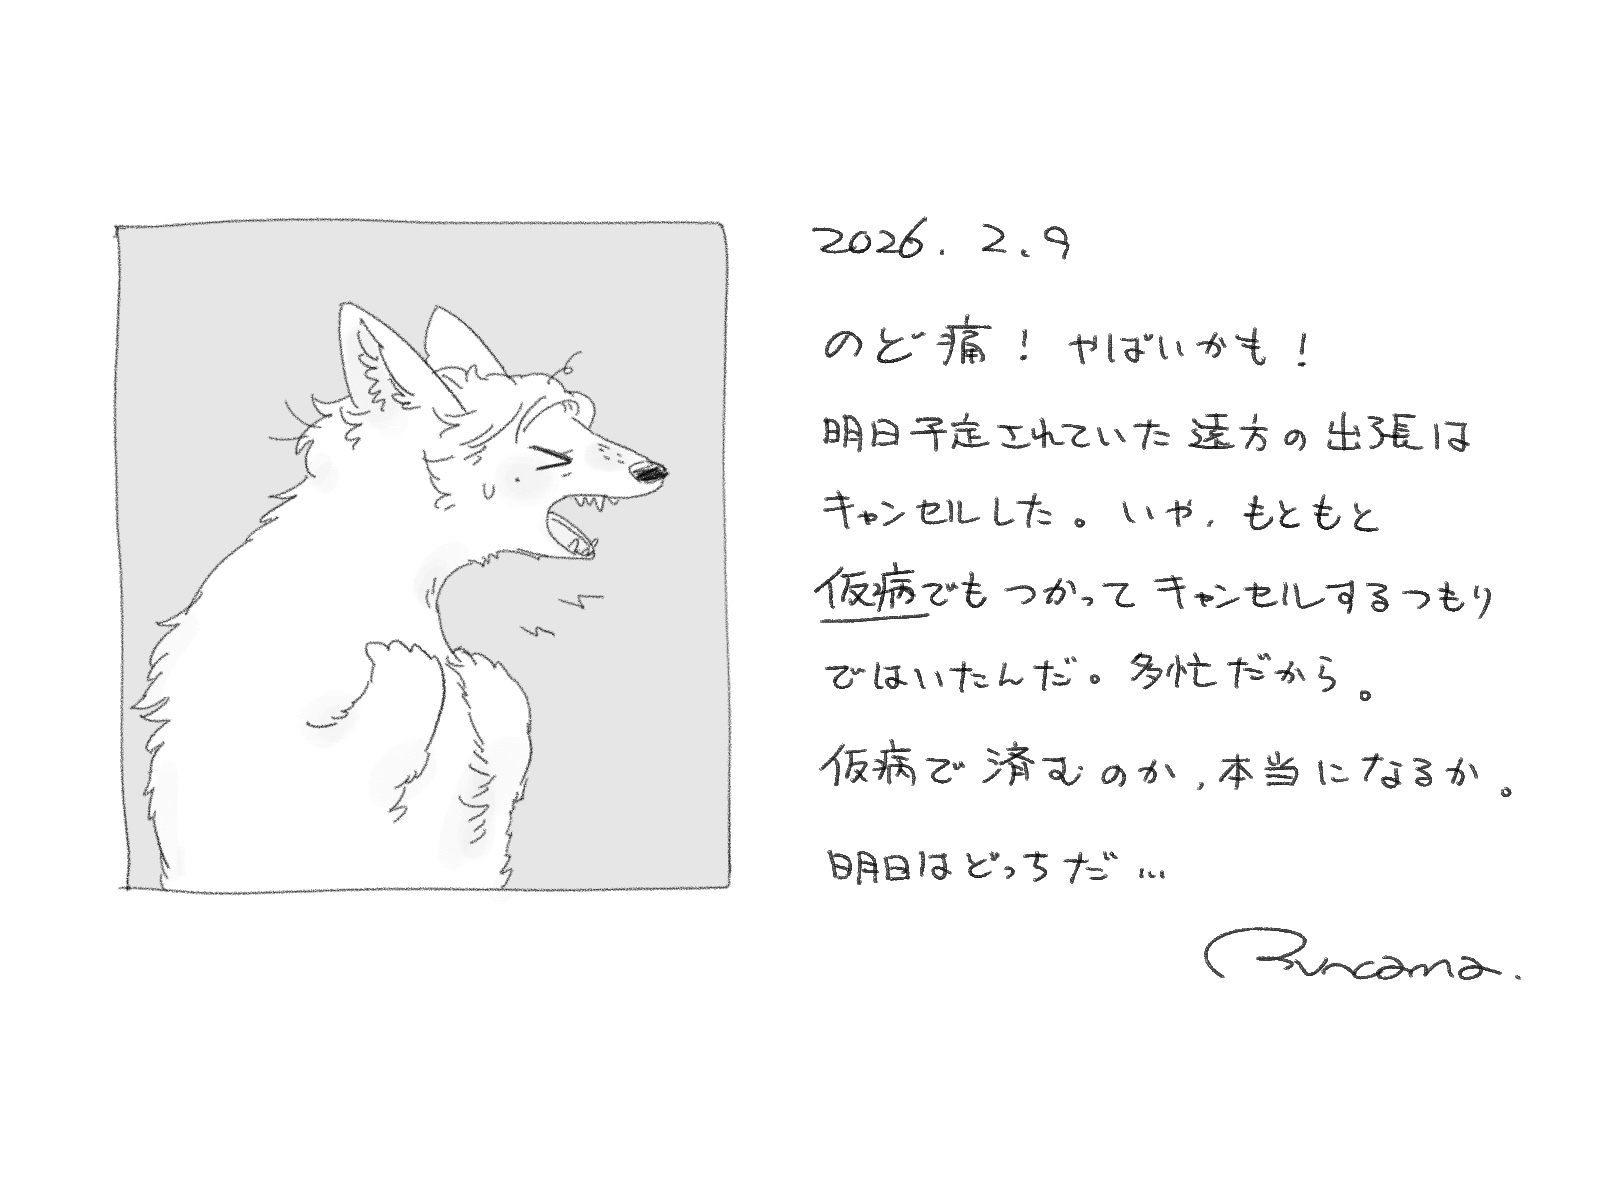 2026. 2.9
のど痛！やばいかも！
明日予定されていた遠方の出張は
キャンセルした。いや、もともと
仮病でもつかってキャンセルするつもり
ではいたんだ。多忙だから。
仮病で済むのか、本当になるか。
明日はどっちだ…